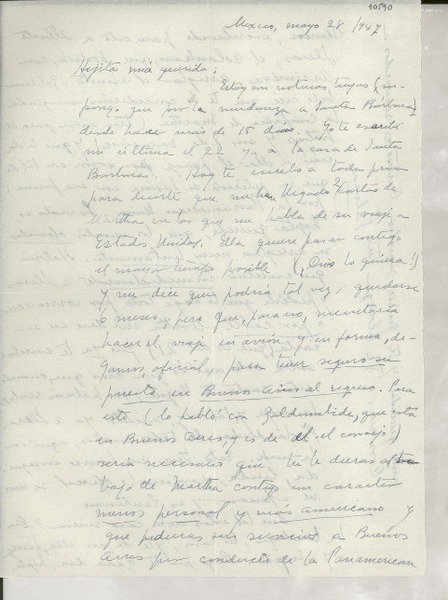 10590
Mexico, mayo 28/947
Hijita mia querida:
Estoy sin noticias tuyas (su-
pongo que por la mudanza a Santa Bárbara)
desde hace más de 15 días. Yo te escribí
mi última el 22 ya a la casa de Santa
Bárbara. Hoy te escribo a toda prisa
para decirte que me han llegado 2 cartas de
Martha en las que me habla de su viaje a
Estados Unidos. Ella quiere pasar contigo
el mayor tiempo posible (¡Dios lo quiera!)
y me dice que podría tal vez, quedarse
6 meses, pero que, para eso, necesitaría
hacer el viaje en avión y en forma, de-
gamos, oficial, para tener seguro su
puesto en Buenos Aires al regreso. Para
esto (lo habló con Zaldumbide, que está
en Buenos Aires y es de él el consejo)
sería necesario que tú le dieras al tra-
bajo de Martha contigo un carácter
menos personal y más americano y
que pidieras sus servicios a Buenos
Aires por conducto de la Panamerican